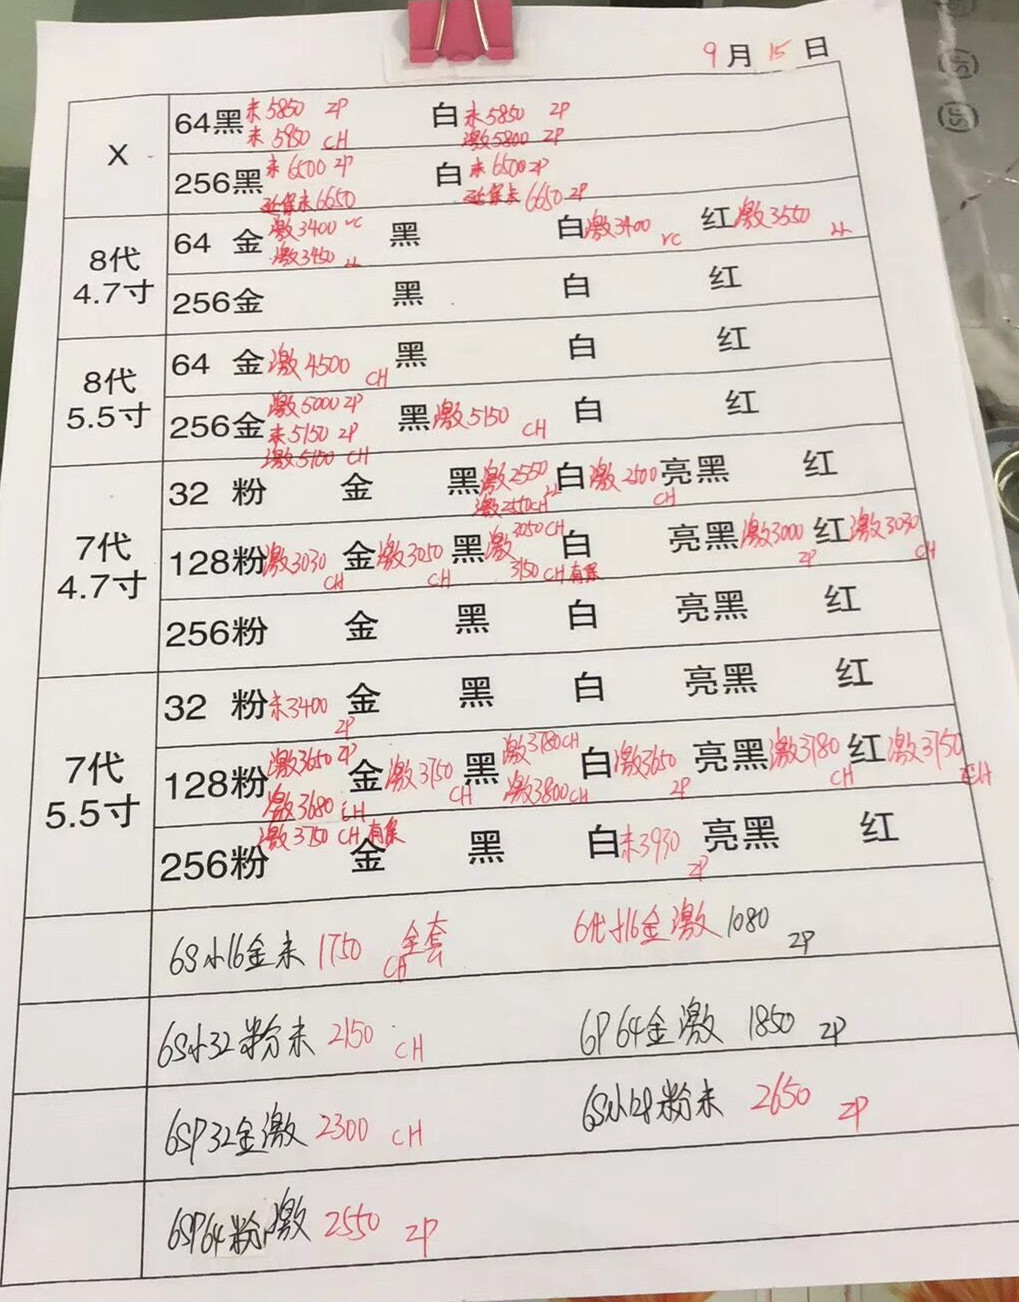 9月15日
X
64黑 未5850 ZP 白 未5850 ZP
未5950 CH 激5800 ZP
256黑 未6500 ZP 白 未6500 ZP
延保未6650 延保未6650 ZP
8代
4.7寸
64 金 激3400 VC 黑 白 激3400 VC 红 激3550 LL
激3450 LL
256金 黑 白 红
8代
5.5寸
64 金 激4500 CH 黑 白 红
256金 激5000 ZP 黑 激5150 CH 白 红
未5150 ZP
激5100 CH
7代
4.7寸
32 粉 金 黑 激2550 白 激2500 CH 亮黑 红
激2550CH
128粉 激3030 CH 金 激3050 CH 黑 激3050CH 白 亮黑 激3000 ZP 红 激3030 CH
3150 CH 有保
256粉 金 黑 白 亮黑 红
7代
5.5寸
32 粉 未3400 ZP 金 黑 白 亮黑 红
128粉 激3650 ZP 金 激3750 CH 黑 激3780CH 白 激3650 ZP 亮黑 激3780 CH 红 激3750 CH
激3680 CH 激3800CH
激3750 CH 有保
256粉 金 黑 白 未3930 ZP 亮黑 红
6S小16金未 1750 CH 全套 6代小16金激 1080 ZP
6S小32粉未 2150 CH 6P64金激 1850 ZP
6SP32金激 2300 CH 6S小128粉未 2650 ZP
6SP64粉激 2550 ZP